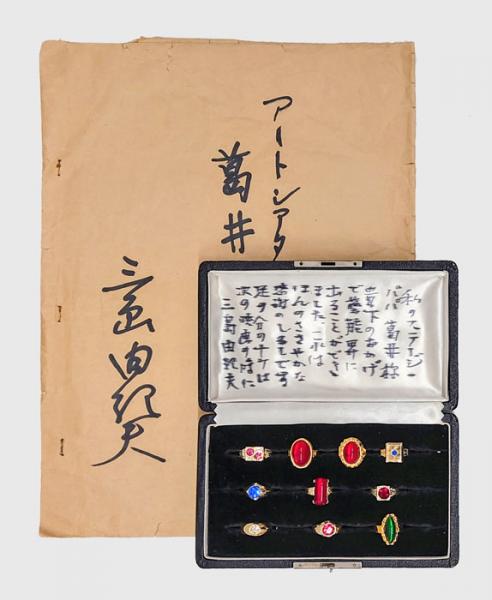 アートシアタ
葛井
三島由紀夫
私のステージ
パパ 葛井様
貴下のおかげ
で藝能界に
出ることができ
ました、これは
ほんのささやかな
感謝のしるしです
分のツケは
次の映画の時に
三島由紀夫